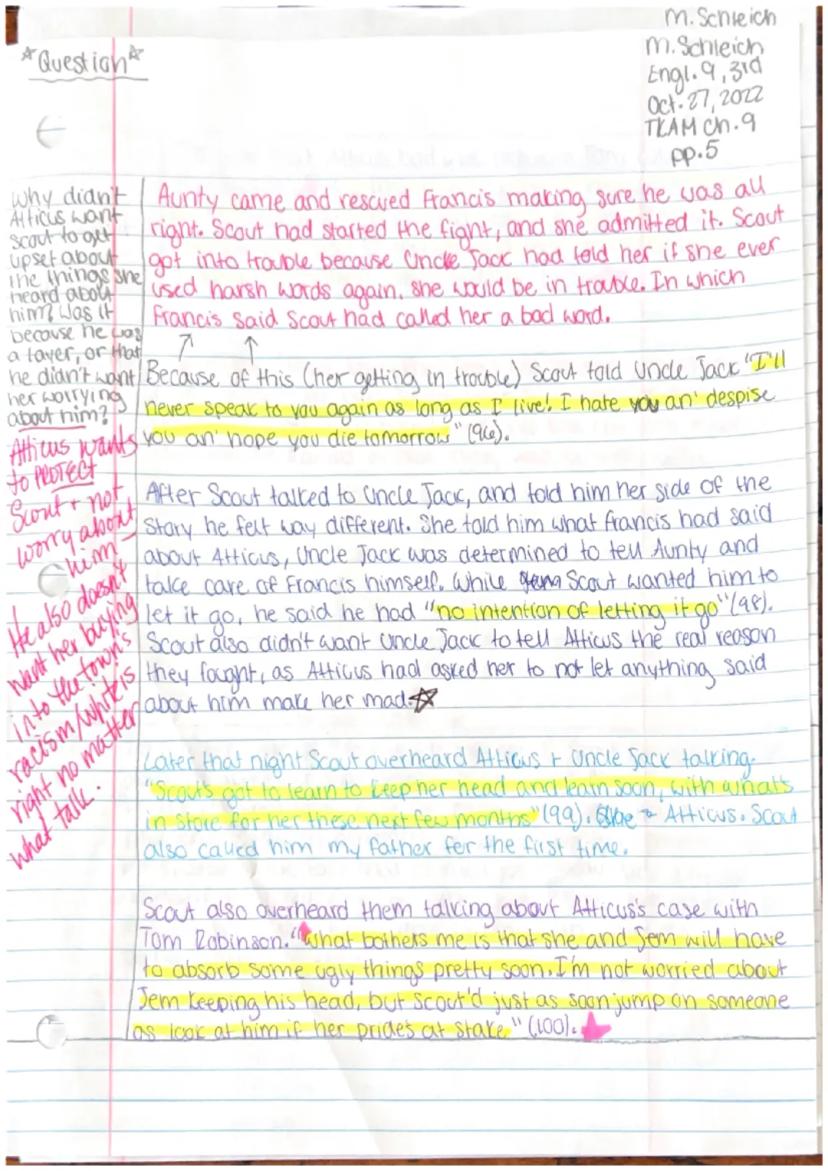 M. Schleich
M. Schleich
Engl. 9, 3rd
Oct. 27, 2022
TKAM Ch. 9
pp. 5
☆Question☆
why didn't
Atticus want
scout to get
upset about
the things she
heard about
him? Was it
because he was
a layer, or that
he didn't want
her worrying
about him?
Atticus wants
to PROTECT
Scout + not
worry about
him—
He also doesn't
want her buying
into the town's
racism/white is
right no matter
what talk.
Aunty came and rescued Francis making sure he was all
right. Scout had started the fight, and she admitted it. Scout
got into trouble because Uncle Jack had told her if she ever
used harsh words again, she would be in trouble. In which
Francis said Scout had called her a bad word.
Because of this (her getting in trouble) Scout told Uncle Jack "I'll
never speak to you again as long as I live! I hate you an' despise
you an' hope you die tomorrow" (96).
After Scout talked to Uncle Jack, and told him her side of the
story he felt way different. She told him what Francis had said
about Atticus, Uncle Jack was determined to tell Aunty and
take care of Francis himself. While Scout wanted him to
let it go, he said he had "no intention of letting it go" (98).
Scout also didn't want Uncle Jack to tell Atticus the real reason
they fought, as Atticus had asked her to not let anything said
about him make her mad.☆
Later that night Scout overheard Atticus + Uncle Jack talking.
"Scout's got to learn to keep her head and learn soon, with what's
in store for her these next few months" (99). Atticus. Scout
also called him my father for the first time.
Scout also overheard them talking about Atticus's case with
Tom Robinson. "What bothers me is that she and Jem will have
to absorb some ugly things pretty soon. I'm not worried about
Jem keeping his head, but Scout'd just as soon jump on someone
as look at him if her pride's at stake" (100).★